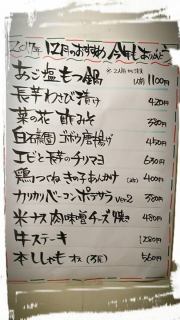 2017年 12月のおすすめ 今年もありがとう
あご塩もつ鍋 ※2人前から注文 1人前 1100円
長芋わさび漬け 420円
菜の花 酢みそ 380円
白石農園 ゴボウ唐揚げ 450円
エビと長芋のチリマヨ 630円
鶏つくね きの子あんかけ 400円
カリカリベーコンポテサラ ver2 380円
米ナス 肉味噌チーズ焼き 480円
牛ステーキ 1280円
本ししゃも オス (3尾) 560円